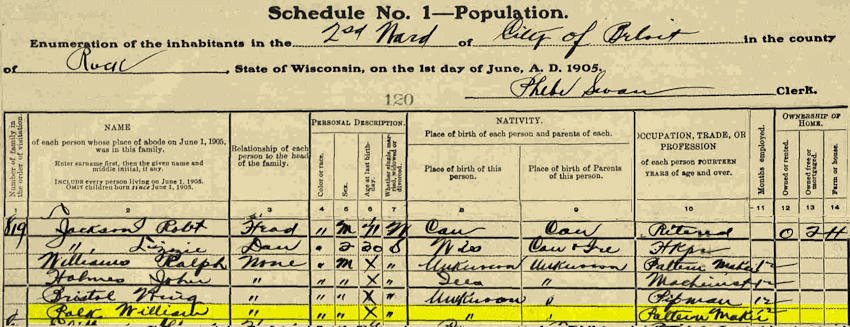 Schedule No. 1—Population.
Enumeration of the inhabitants in the 2nd Ward of City of Beloit in the county
of Rock, State of Wisconsin, on the 1st day of June, A. D. 1905.
120
Phebe Swan Clerk.
Number of family in the order of visitation.
NAME
of each person whose place of abode on June 1, 1905, was in this family.
Enter surname first, then the given name and middle initial, if any.
INCLUDE every person living on June 1, 1905. OMIT children born since June 1, 1905.
Relationship of each person to the head of the family.
PERSONAL DESCRIPTION.
Color or race.
Sex.
Age at last birthday.
Whether single, married, widowed or divorced.
NATIVITY.
Place of birth of each person and parents of each.
Place of birth of this person.
Place of birth of Parents of this person.
OCCUPATION, TRADE, OR PROFESSION
of each person FOURTEEN YEARS of age and over.
Months employed.
OWNERSHIP OF HOME.
Owned or rented.
Owned free or mortgaged.
Farm or house.
2 3 4 5 6 7 8 9 10 11 12 13 14
819 Jackson Robt Head " M 71 W Can Can Retired O F H
" Lizzie Dau " 20 S Wis Can & Ire
Williams Ralph None " M X " Unknown Unknown Pattern Maker 12
Holmes John " " " X " " Machinist 12
Bristol " " " X " Unknown " 12
Polk William " " " X " " " Pattern Maker